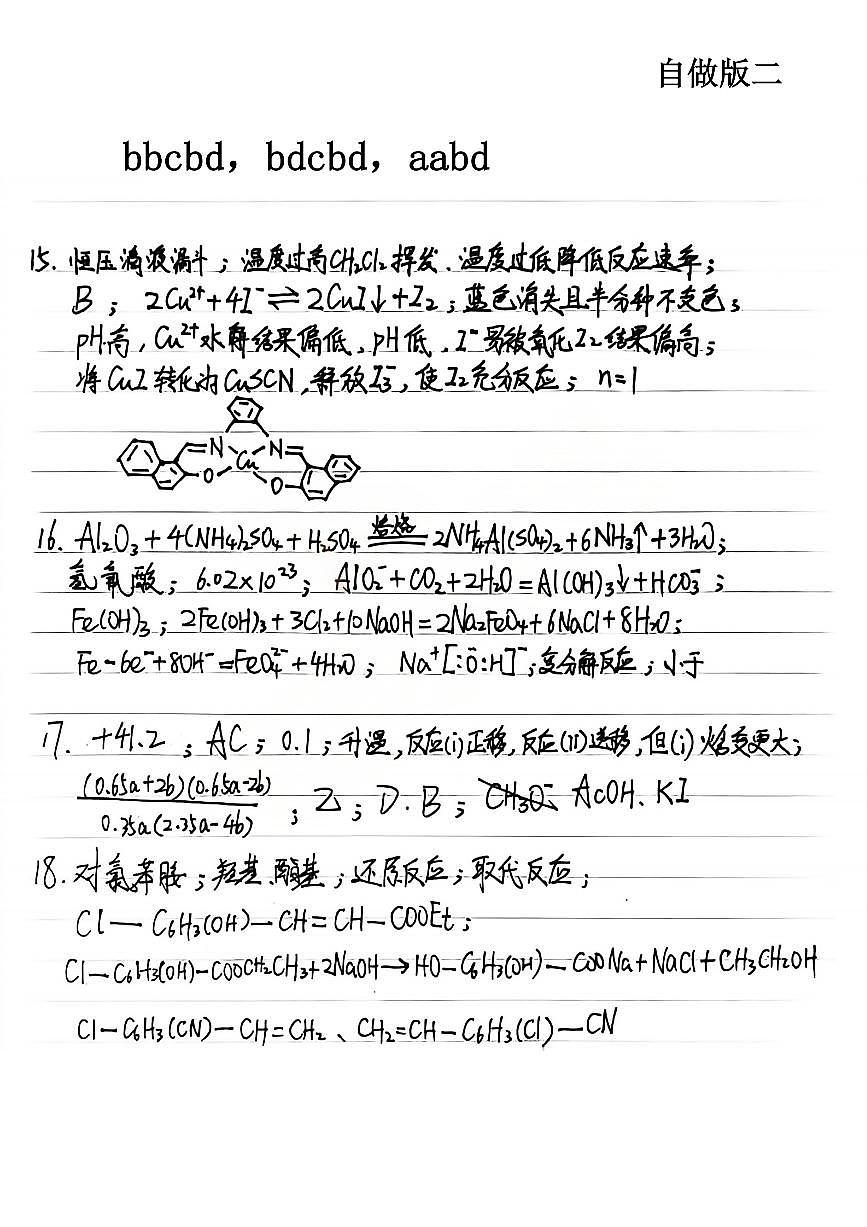 自做版二
bbcbd，bdcbd，aabd
15. 恒压滴液漏斗；温度过高CH₂Cl₂挥发、温度过低降低反应速率；
B；2Cu²⁺+4I⁻⇌2CuI↓+I₂；蓝色消失且半分钟不变色；
pH高，Cu²⁺水解结果偏低、pH低，I⁻易被氧化I₂结果偏高；
将CuI转化为CuSCN，释放I₃⁻，使I₂充分反应；n=1
N N
Cu
O O
16. Al₂O₃+4(NH₄)₂SO₄+H₂SO₄ 焙烧 2NH₄Al(SO₄)₂+6NH₃↑+3H₂O；
氢氧酸；6.02×10²³；AlO₂⁻+CO₂+2H₂O=Al(OH)₃↓+HCO₃⁻；
Fe(OH)₃；2Fe(OH)₃+3Cl₂+10NaOH=2Na₂FeO₄+6NaCl+8H₂O；
Fe-6e⁻+8OH⁻=FeO₄²⁻+4H₂O；Na⁺[:Ö:H]⁻；复分解反应；小于
17. +41.2；AC；0.1；升温，反应(i)正移，反应(ii)逆移，但(i)焓变更大；
(0.65a+2b)(0.65a-2b)
0.35a(2.35a-4b)
；Z；D.B；AcOH、KI
18. 对氯苯胺；羟基、醚基；还原反应；取代反应；
Cl—C₆H₃(OH)—CH=CH—COOEt；
Cl—C₆H₃(OH)—COOCH₂CH₃+2NaOH→HO—C₆H₃(OH)—COONa+NaCl+CH₃CH₂OH
Cl—C₆H₃(CN)—CH=CH₂、CH₂=CH—C₆H₃(Cl)—CN